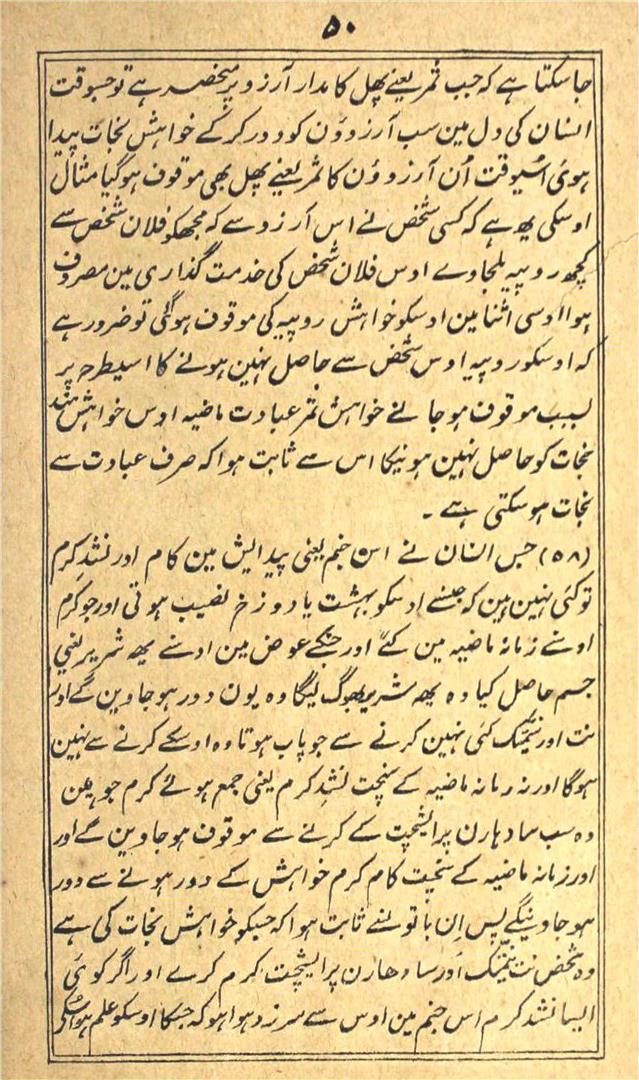 ۵۰
جاسکتا ہے کہ جب ثمر یعنے پھل کا مدار آرزو پر منحصر ہے تو جسوقت
انسان کی دل مین سب آرزوؤن کو دور کر کے خواہش نجات پیدا
ہوئی اسیوقت اُن آرزوؤن کا ثمر یعنے پھل بھی موقوف ہو گیا مثال
اوسکی یھ ہے کہ کسی شخص نے اس آرزو سے کہ مجھکو فلان شخص سے
کچھ روپیہ ملجاوے اوس فلان شخص کی خدمت گذاری مین مصروف
ہوا اوسی اثنا مین اوسکو خواہش روپیہ کی موقوف ہو گئی تو ضرور ہے
کہ اوسکو روپیہ اوس شخص سے حاصل نہین ہونے کا اسیطرح پر
بسبب موقوف ہو جانے خواہش ثمر عبادت ماضیہ اوس خواہش مند
نجات کو حاصل نہین ہونیکا اس سے ثابت ہوا کہ صرف عبادت سے
نجات ہو سکتی ہے ۔
(۵۸) جس انسان نے اس جنم یعنی پیدایش مین کام اور نشد کرم
تو کئی نہین ہین کہ جنسے اوسکو بہشت یا دوزخ نصیب ہوتی اور جو کرم
اوسنے زمانہ ماضیہ مین کئے اور جنکے عوض مین اوسنے یھ شریر یعنی
جسم حاصل کیا وہ یھ شریر بھوگ لیگا وہ یون دور ہو جاوین گے اور
نت اور نیمتک کئی نہین کرنے سے جو پاپ ہوتا وہ اوسکے کرنے سے نہین
ہوگا اور نہ زمانہ ماضیہ کے سنچت نشد کرم یعنی جمع ہوئے کرم جو ہین
وہ سب سادہارن پرایشچت کے کرنے سے موقوف ہو جاوین گے اور
اور زمانہ ماضیہ کے سنچت کام کرم خواہش کے دور ہونے سے دور
ہو جاوینگے پس اِن باتونسے ثابت ہوا کہ جسکو خواہش نجات کی ہے
وہ شخص نت نیمتک اور سادھارن پرایشچت کرم کرے اور اگر کوئی
ایسا نشد کرم اس جنم مین اوس سے سرزد ہوا ہو کہ جسکا اوسکو علم ہو